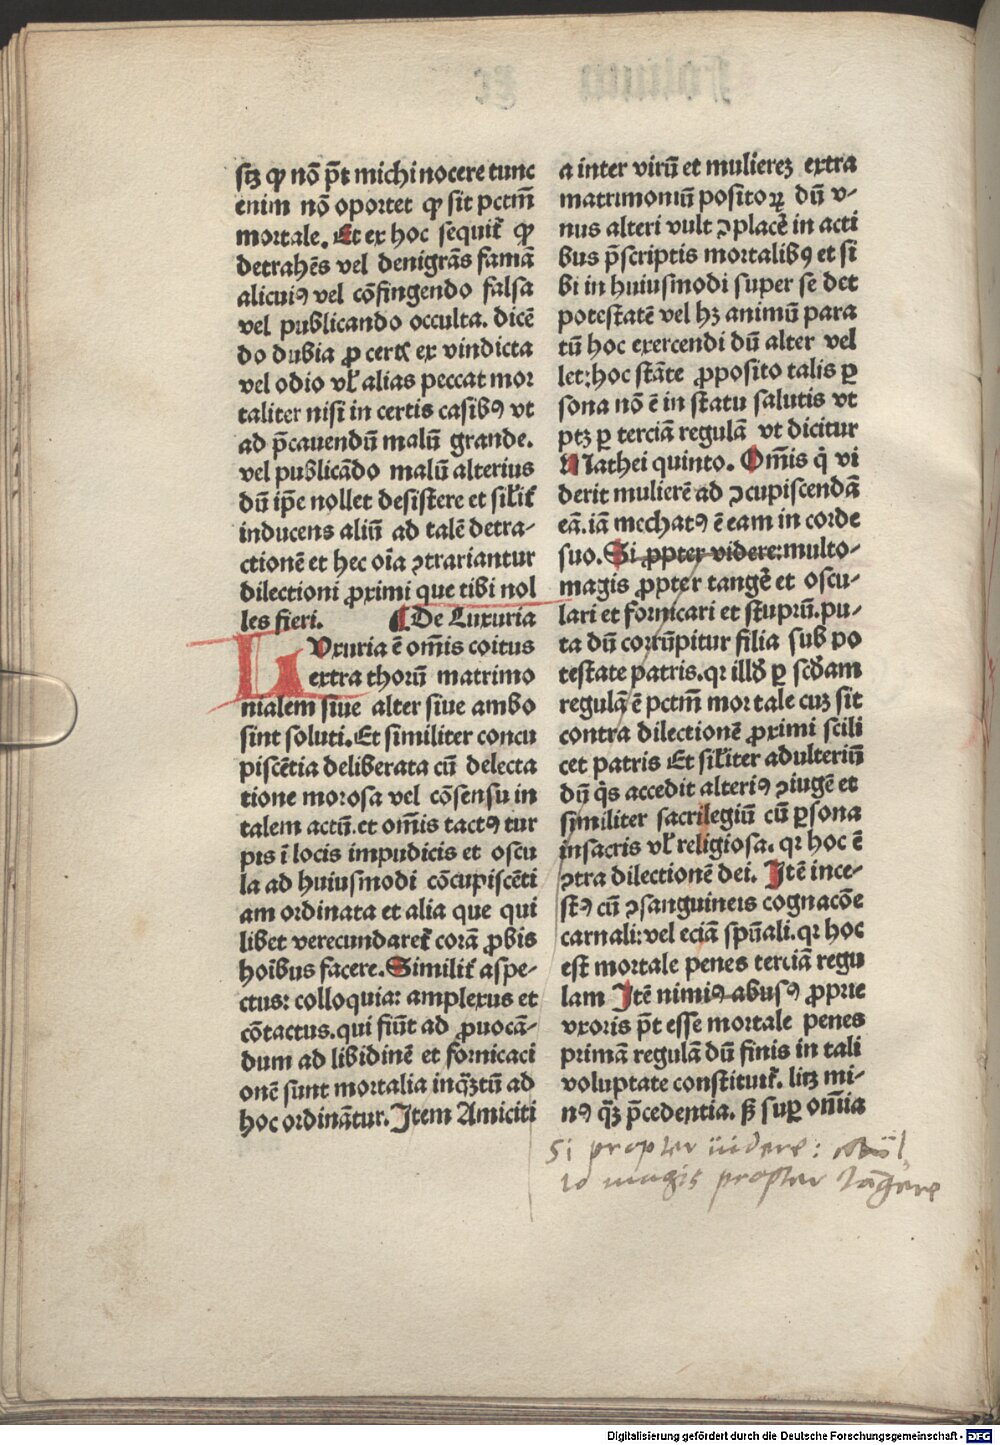 sitꝫ ꝙ nō p̄t michi nocere tunc
enim nō oportet ꝙ sit pctm̄
mortale. Et ex hoc sequit᷑ ꝙ
detrahēs vel denigrās famā
alicuiꝰ vel cōfingendo falsa
vel publicando occulta. dicē
do dubia ꝓ certꝭ ex vindicta
vel odio vł alias peccat mor
taliter nisi in certis casibꝰ vt
ad p̄cauendū malū grande.
vel publicādo malū alterius
dū ip̄e nollet desistere et silit᷑
inducens aliū ad talē detra-
ctionē et hec oīa ꝯtrariantur
dilectioni ꝓximi que tibi nol
les fieri. ¶ De Luxuria
LUxuria ē om̄is coitus
extra thorū matrimo
nialem siue alter siue ambo
sint soluti. Et similiter concu
piscētia deliberata cū delecta
tione morosa vel cōsensu in
talem actū. et om̄is tactꝰ tur
pis ī locis impudicis et oscu
la ad huiusmodi cōcupiscēti
am ordinata et alia que qui
libet verecundaret᷑ corā ꝓbis
hoībus facere. Similit᷑ aspe-
ctus: colloquia: amplexus et
cōtactus. qui fiūt ad ꝓuocā-
dum ad libidinē et fornicaci
onē sunt mortalia inq̄ꝫtū ad
hoc ordinātur. Item Amiciti
a inter virū et mulierez extra
matrimoniū positoꝝ dū v-
nus alteri vult ꝯplacē in acti
bus p̄scriptis mortalibꝰ et si
bi in huiusmodi super se det
potestatē vel hꝫ animū para
tū hoc exercendi dū alter vel
let: hoc stāte ꝓposito talis ꝑ
sona nō ē in statu salutis vt
ptꝫ ꝑ terciā regulā vt dicitur
Mathei quinto. Om̄is q̇ vi
derit mulierē ad ꝯcupiscendā
eā. iā mechatꝰ ē eam in corde
suo. Si ꝓpter videre: multo-
magis ꝓpter tangē et oscu-
lari et fornicari et stuprū. pu-
ta dū corrūpitur filia sub po
testate patris. qr illđ ꝑ scđam
regulā ē pctm̄ mortale cuz sit
contra dilectionē ꝓximi scili
cet patris Et siłiter adulteriū
dū q̇s accedit alteriꝰ ꝯiugē et
similiter sacrilegiū cū ꝑsona
insacris vł religiosa. qr hoc ē
ꝯtra dilectionē dei. Itē ince-
stꝰ cū ꝯsanguineis cognacōe
carnali: vel eciā spūali. qr hoc
est mortale penes terciā regu
lam Itē nimiꝰ abusꝰ ꝓprie
vxoris p̄t esse mortale penes
primā regulā dū finis in tali
voluptate constituit᷑. litꝫ mi-
nꝰ q̄ꝫ p̄cedentia. sꝫ suꝑ om̄ia
Si propter uidere: mul
to magis propter tāgere